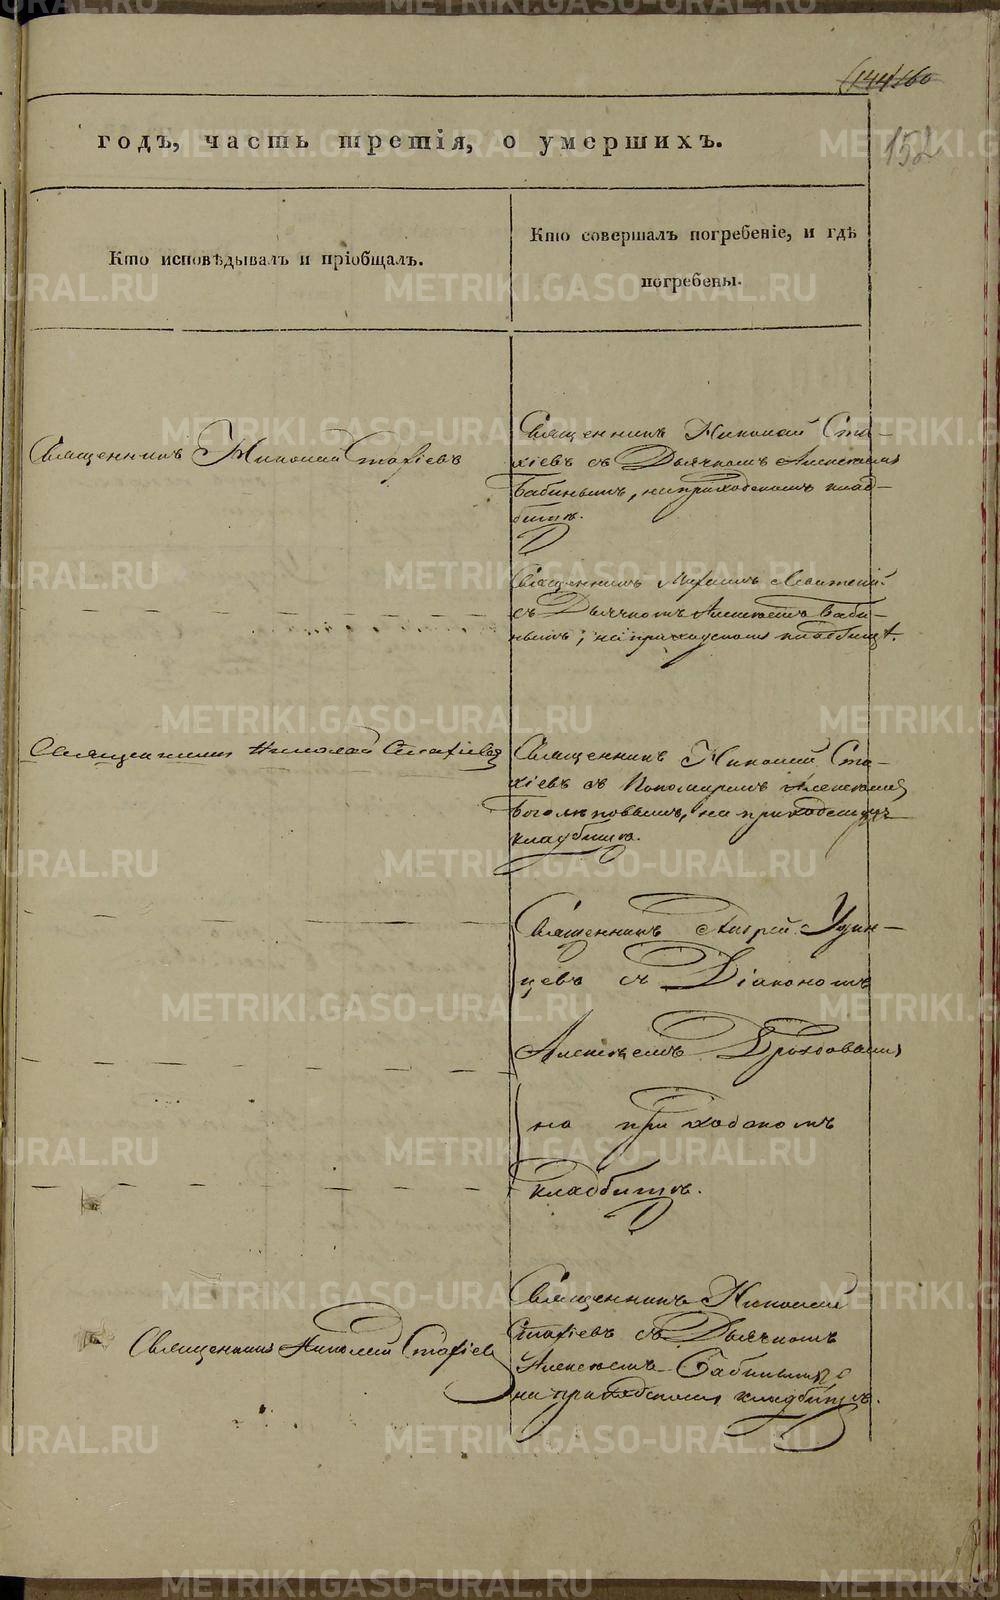 (144) 160
152
годъ, часть третія, о умершихъ.
Кто исповѣдывалъ и пріобщалъ.
Кто совершалъ погребеніе, и гдѣ
погребены.
Священникъ Николай Стахіевъ
Священникъ Николай Ста-
хіевъ съ Дьячкомъ Алексѣемъ
Бабинымъ, на приходскомъ клад-
бищѣ.
Священникъ
съ Дьячкомъ Алексѣемъ Баби-
нымъ, на приходскомъ кладбищѣ.
Священникъ Николай Стахіевъ
Священникъ Николай Ста-
хіевъ съ Пономаремъ Алексѣемъ
Боголѣповымъ, на приходскомъ
кладбищѣ.
Священникъ Андрей Удин-
цевъ съ Діакономъ
Алексѣемъ
на приходскомъ
кладбищѣ.
Священникъ Николай Стахіевъ
Священникъ Николай
Стахіевъ съ Дьячкомъ
Алексѣемъ Бабинымъ
на приходскомъ кладбищѣ.
METRIKI.GASO-URAL.RU